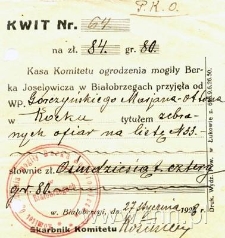 P.K.O.
KWIT Nr. 64
na zł. 84. gr. 80
Kasa Komitetu ogrodzenia mogiły Ber-
ka Joselowicza w Białobrzegach przyjęła od
WP. Gorczyńskiego Marjana
w Kocku tytułem zebra-
nych ofiar na listę N 33.
słownie zł. Osmdziesiąt cztery
gr. 80
w Białobrzegi, dn. 27 stycznia 192
Skarbnik Komitetu